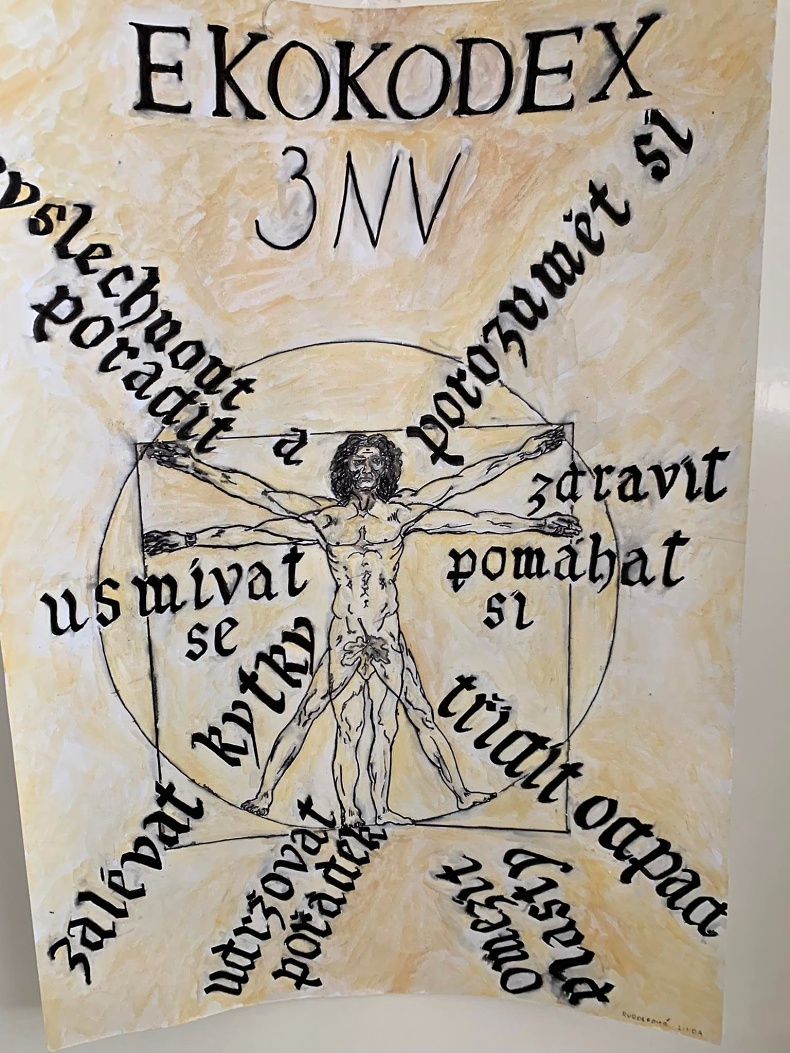 EKOKODEX
3NV
vyslechnout a
poradit
porozumět si
zdravit
pomáhat
si
usmívat
se
zalévat kytky
udržovat
pořádek
omezit
plasty
třídit odpad